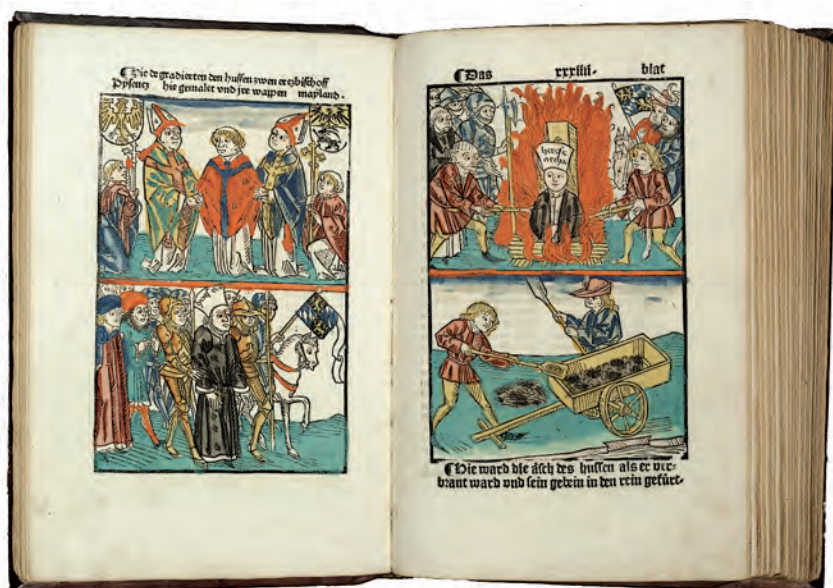 ¶Hie degradierten den huſſen zwen ertzbiſchoff
hie gemalet vnd jre wappen mayland.
¶Das xxxiiii. blat
¶Hie ward die äſch des huſſen als er ver-
brant ward vnd ſein gebein in den rein gefürt.